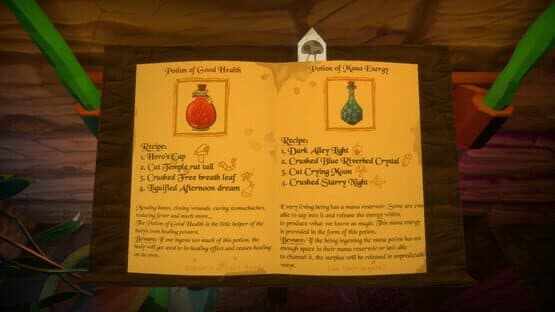 Potion of Good Health
Recipe:
1. Hero's Cap
2. Cut Temple rat tail
3. Crushed Free breath leaf
4. Liquified Afternoon dream
Mending bones, closing wounds, curing stomachaches,
reducing fever and much more...
The Potion of Good Health is the little helper of the
body's own healing powers.
Beware: If one ingests too much of this potion, the
body will get used to its healing effect and ceases healing
on its own.
Potion of Mana Energy
Recipe:
1. Dark Alley Light
2. Crushed Blue Riverbed Crystal
3. Cut Crying Moon
4. Crushed Starry Night
Every living being has a mana reservoir. Some are even
able to tap into it and release the energy within
to produce what we know as magic. This mana energy
is provided in the form of this potion.
Beware: If the being ingesting the mana potion has not
enough space in their mana reservoir or isn't able
to channel it, the surplus will be released in unpredictable
ways.